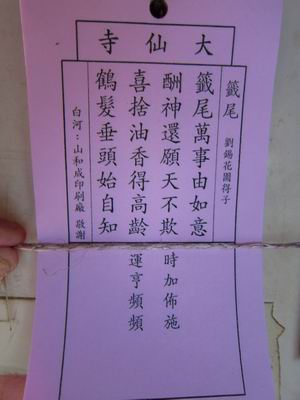 大仙寺
籤尾 劉錫花園得子
籤尾萬事由如意
酬神還願天不欺
喜捨油香得高齡
鶴髮垂頭始自知
時加佈施
運亨頻頻
白河：山和成印刷廠 敬謝